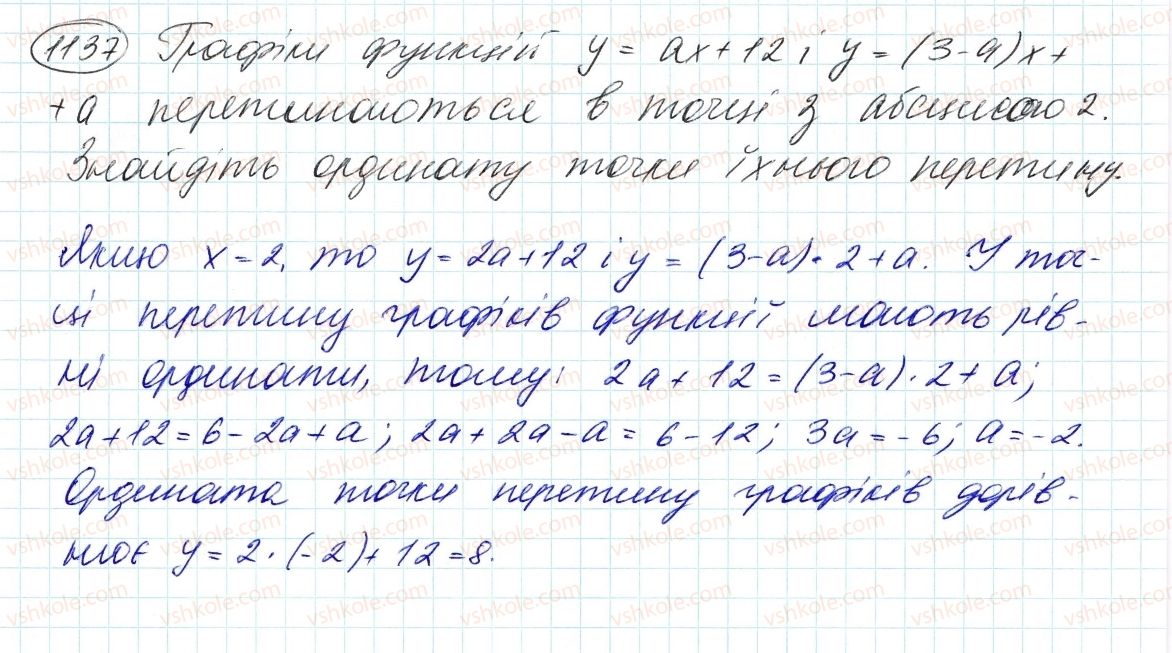 1137 Графіки функцій y = ax + 12 і y = (3 - a)x +
+ a перетинаються в точці з абсцисою 2.
Знайдіть ординату точки їхнього перетину.
Якщо x = 2, то y = 2a + 12 і y = (3 - a) · 2 + a. У точ-
ці перетину графіків функції мають рів-
ні ординати, тому: 2a + 12 = (3 - a) · 2 + a;
2a + 12 = 6 - 2a + a; 2a + 2a - a = 6 - 12; 3a = -6; a = -2.
Ордината точки перетину графіків дорів-
нює y = 2 · (-2) + 12 = 8.
vshkole.com